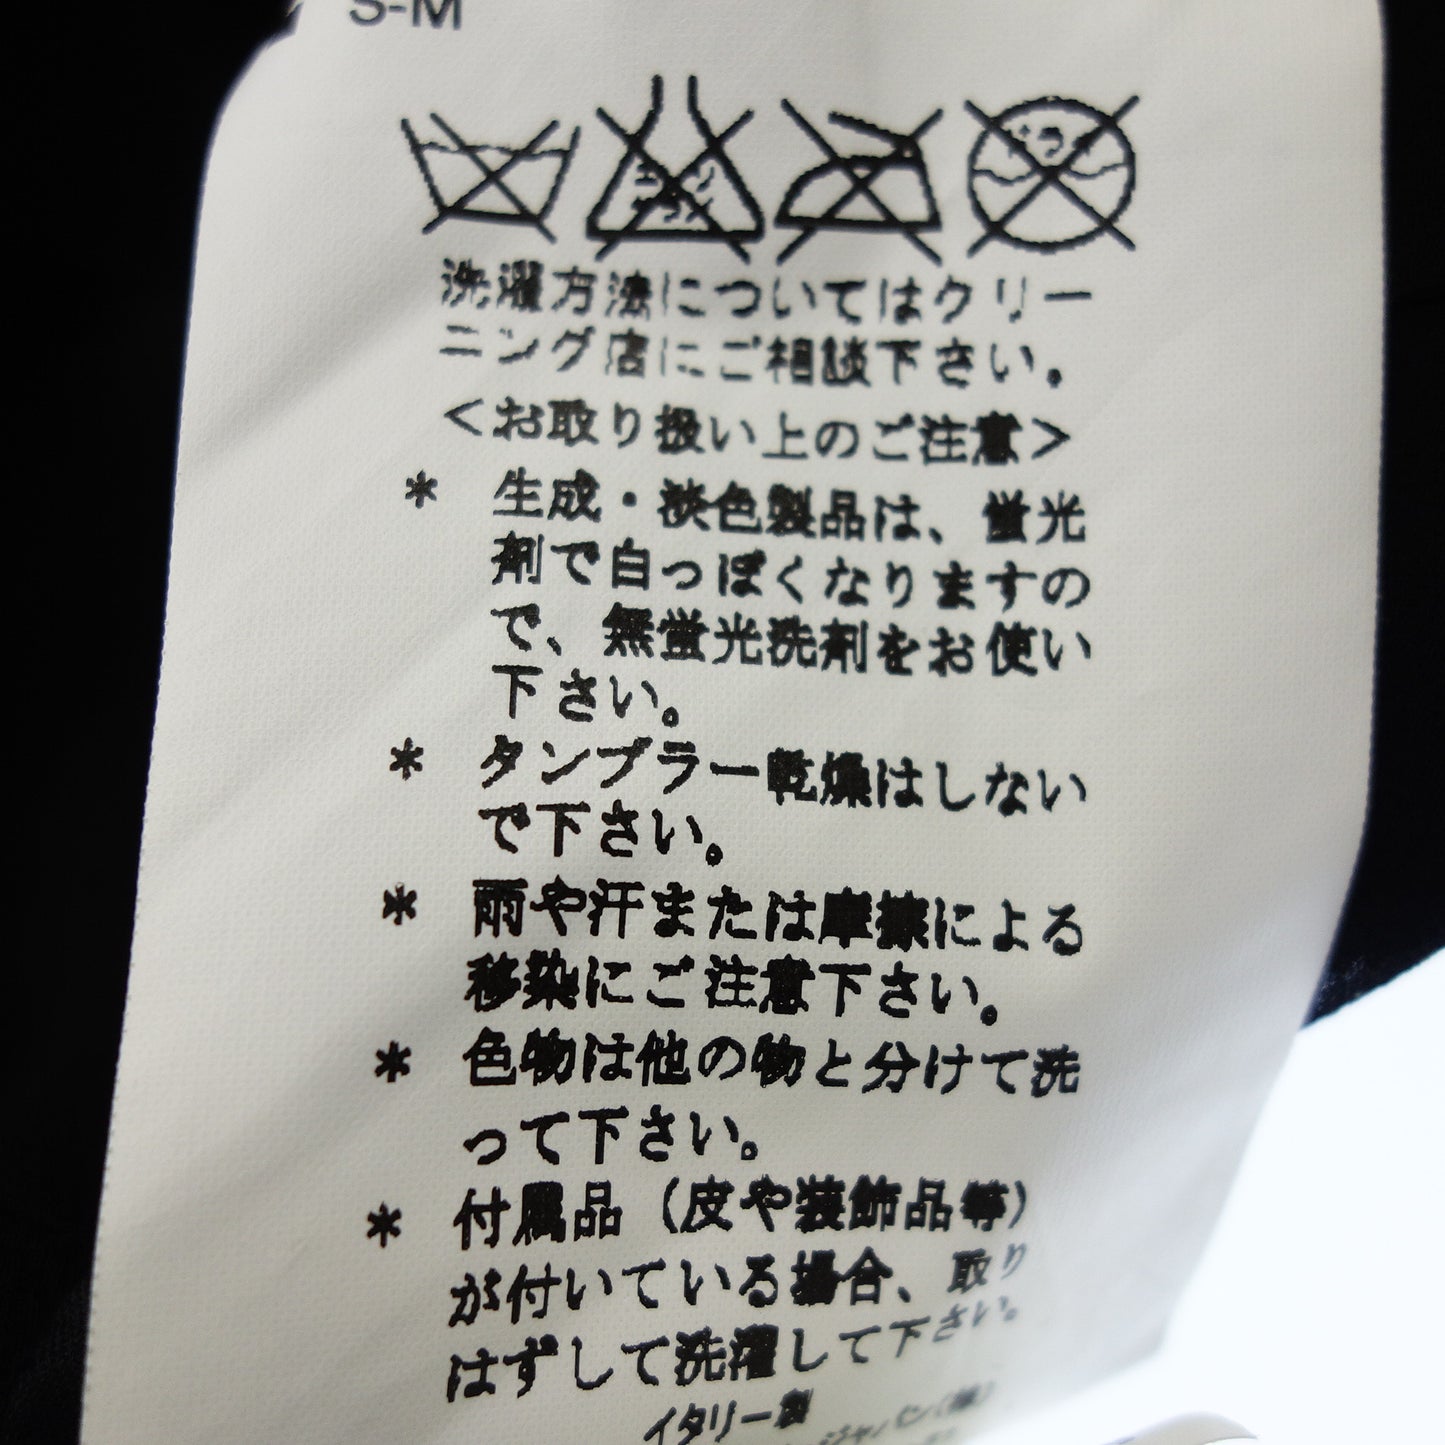 S-M
洗濯方法についてはクリー
ニング店にご相談下さい。
<お取り扱い上のご注意>
* 生成・淡色製品は、蛍光
剤で白っぽくなりますの
で、無蛍光洗剤をお使い
下さい。
* タンブラー乾燥はしない
で下さい。
* 雨や汗または摩擦による
移染にご注意下さい。
* 色物は他の物と分けて洗
って下さい。
* 付属品(皮や装飾品等)
が付いている場合、取り
はずして洗濯して下さい。
イタリー製
ジャパン(株)